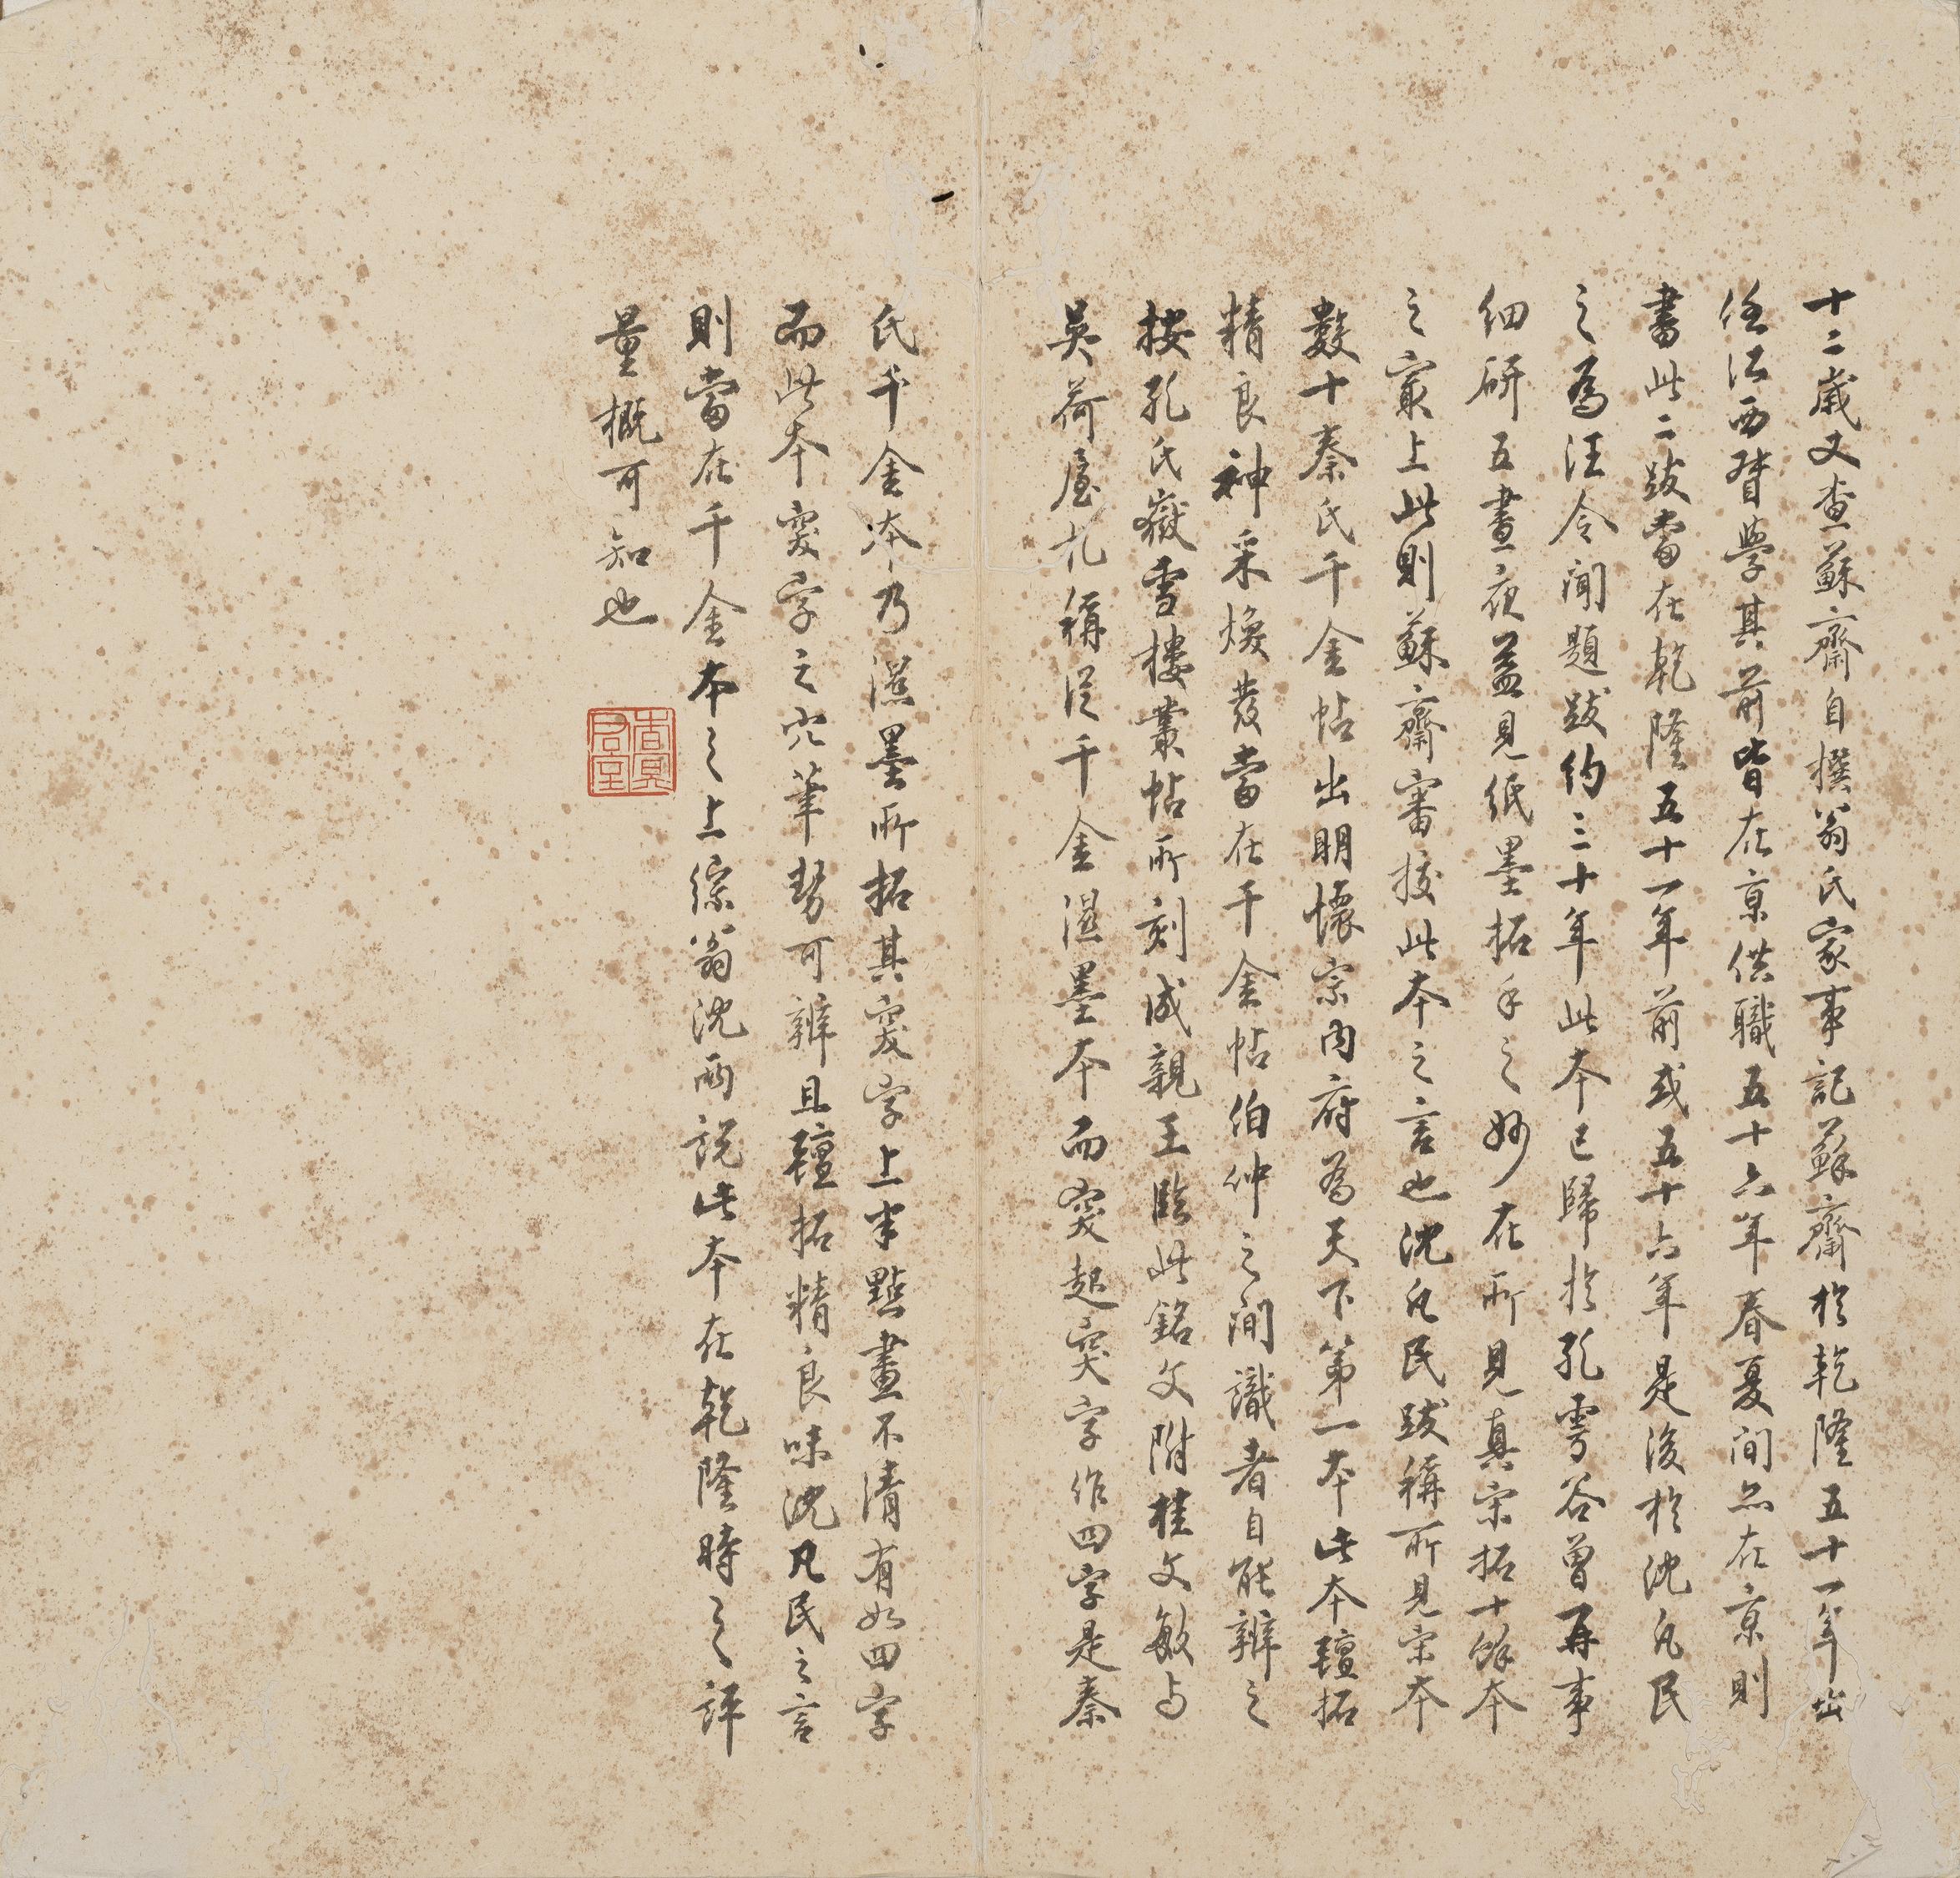 十二歲又查蘇齋自撰翁氏家事記蘇齋於乾隆五十一年出
任江西督學其前皆在京供職五十六年春夏間亦在京則
書此二跋當在乾隆五十一年前或五十六年是後於沈凡民
之為汪令聞題跋約三十年此本已歸於孔雩谷曾再事
細研五晝夜益見紙墨拓手之妙在所見真宋拓十餘本
之最上此則蘇齋審挍此本之言也沈凡民跋稱所見宋本
數十秦氏千金帖出明懷宗內府為天下第一本此本氊拓
精良神采煥發當在千金帖伯仲之間識者自能辨之
按孔氏嶽雪樓叢帖所刻成親王臨此銘文附桂文敏與
吳荷屋札稱從千金濕墨本而突起突字作四字是秦
氏千金本乃濕墨所拓其突字上半點畫不清有如四字
而此本突字之穴筆勢可辨且氊拓精良味沈凡民之言
則當在千金本之上綜翁沈兩說此本在乾隆時之評
量概可知也